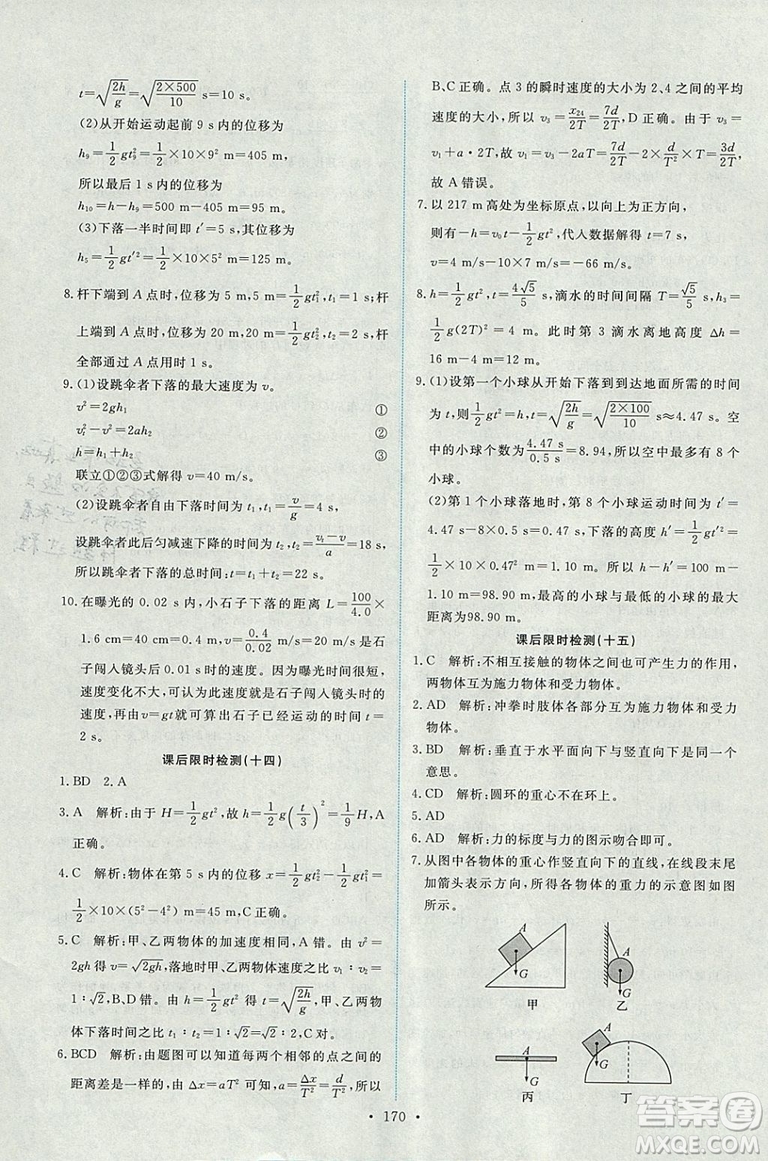 t=√(2h/g)=√(2×500/10) s=10 s。
(2)从开始运动起前 9 s内的位移为
h₉=1/2 gt₉²=1/2×10×9² m=405 m,
所以最后 1 s内的位移为
h₁₀=h-h₉=500 m-405 m=95 m。
(3)下落一半时间即 t′=5 s,其位移为
h₅=1/2 gt′²=1/2×10×5² m=125 m。
8.杆下端到 A 点时,位移为 5 m,5=1/2 gt₁²,t₁=1 s;杆
上端到 A 点时,位移为 20 m,20=1/2 gt₂²,t₂=2 s,杆
全部通过 A 点用时 1 s。
9.(1)设跳伞者下落的最大速度为 v。
v²=2gh₁ ①
v_t²-v²=2ah₂ ②
h=h₁+h₂ ③
联立①②③式解得 v=40 m/s。
(2)设跳伞者自由下落时间为 t₁,t₁=v/g=4 s,
设跳伞者此后匀减速下降的时间为 t₂,t₂=(v_t-v)/a=18 s,
所以跳伞者下落的总时间:t=t₁+t₂=22 s。
10.在曝光的 0.02 s 内,小石子下落的距离 L=100/4.0×
1.6 cm=40 cm=0.4 m,v=0.4/0.02 m/s=20 m/s是石
子闯人镜头后 0.01 s时的速度。因为曝光时间很短,
速度变化不大,可认为此速度就是石子闯人镜头时的
速度。由 v=gt 就可算出石子已经运动的时间 t=
2 s。
课后限时检测(十四)
1.BD 2.A
3.A 解析:由于 H=1/2 gt²,故 h=1/2 g(t/3)²=1/9 H,A
正确。
4.C 解析:物体在第 5 s 内的位移 x=1/2 gt₂²-1/2 gt₁²=
1/2×10×(5²-4²) m=45 m,C正确。
5.C 解析:甲、乙两物体的加速度相同,A 错。由 v²=
2gh 得 v=√2gh,故甲、乙两物体速度之比 v₁∶v₂=
1∶√2,B、D 错。由 h=1/2 gt² 得 t=√(2h/g),甲、乙两物
体下落时间之比 t₁∶t₂=1∶√2=√2∶2,C 对。
6.BCD 解析:由题图可以知道每两个相邻的点之间的
距离差是一样的,由 Δx=aT² 可知,a=Δx/T²=d/T²,所以
B、C 正确。点 3 的瞬时速度的大小为 2、4 之间的平均
速度的大小,所以 v₃=x₂₄/2T=7d/2T,D 正确。由于 v₃=
v₁+a·2T,故 v₁=v₃-2aT=7d/2T-2×d/T²×T=3d/2T,
故 A 错误。
7.以 217 m 高处为坐标原点,以向上为正方向,
则有-h=v₀t-1/2 gt²,代人数据解得 t=7 s,
v=4 m/s-10t m/s=-66 m/s。
8.h=1/2 gt²,t=√(2h/g)=4√5/5 s,滴水的时间间隔 T=√5/5 s,
h′=1/2 g(2T)²=4 m。此时第 3 滴水离地高度 Δh=
16 m-4 m=12 m。
9.(1)设第一个小球从开始下落到达地面所需的时间
为 t,则1/2 gt²=h,t=√(2h/g)=√(2×100/10) s≈4.47 s。空
中的小球个数为4.47 s/0.5 s=8.94,所以空中最多有 8 个
小球。
(2)第 1 个小球落地时,第 8 个小球运动时间为 t′=
4.47 s-8×0.5 s=0.47 s,其下落高度为 h′=1/2 gt′²=
1/2×10×0.47² m≈1.10 m,所以 H=h-h′=100 m-
1.10 m=98.90 m。最高的小球与最低的小球的最大
距离为98.90 m。
课后限时检测(十五)
1.C 解析:不相互接触的物体之间也可产生力的作用,
两物体互为施力物体和受力物体。
2.AD 解析:冲拳时肢体各部分互为施力物体和受力
物体。
3.BD 解析:垂直于水平面方向与竖直方向是同一个
意思。
4.CD 解析:圆环的重心不在环上。
5.AD
6.AD 解析:力的标度与力的图示吻合即可。
7.从图中各物体的重心作竖直向下的直线,在线段末尾
加箭头表示方向,所得各物体的重力的示意图如图
所示。
A
G
甲
A
G
乙
G
丙
A
G
丁
170
答案卷
MXQE.COM